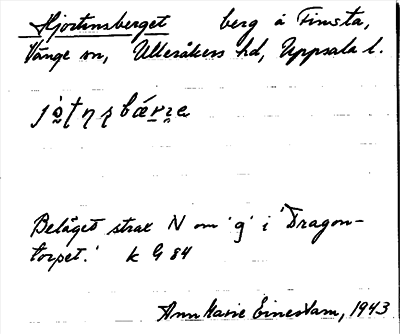 Hjortensberget berg å Finsta,
Vänge sn, Ulleråkers hd, Uppsala l.
Beläget strax N om 'g' i 'Dragon-
torpet.' k G 84
Ann Marie Einestam, 1943